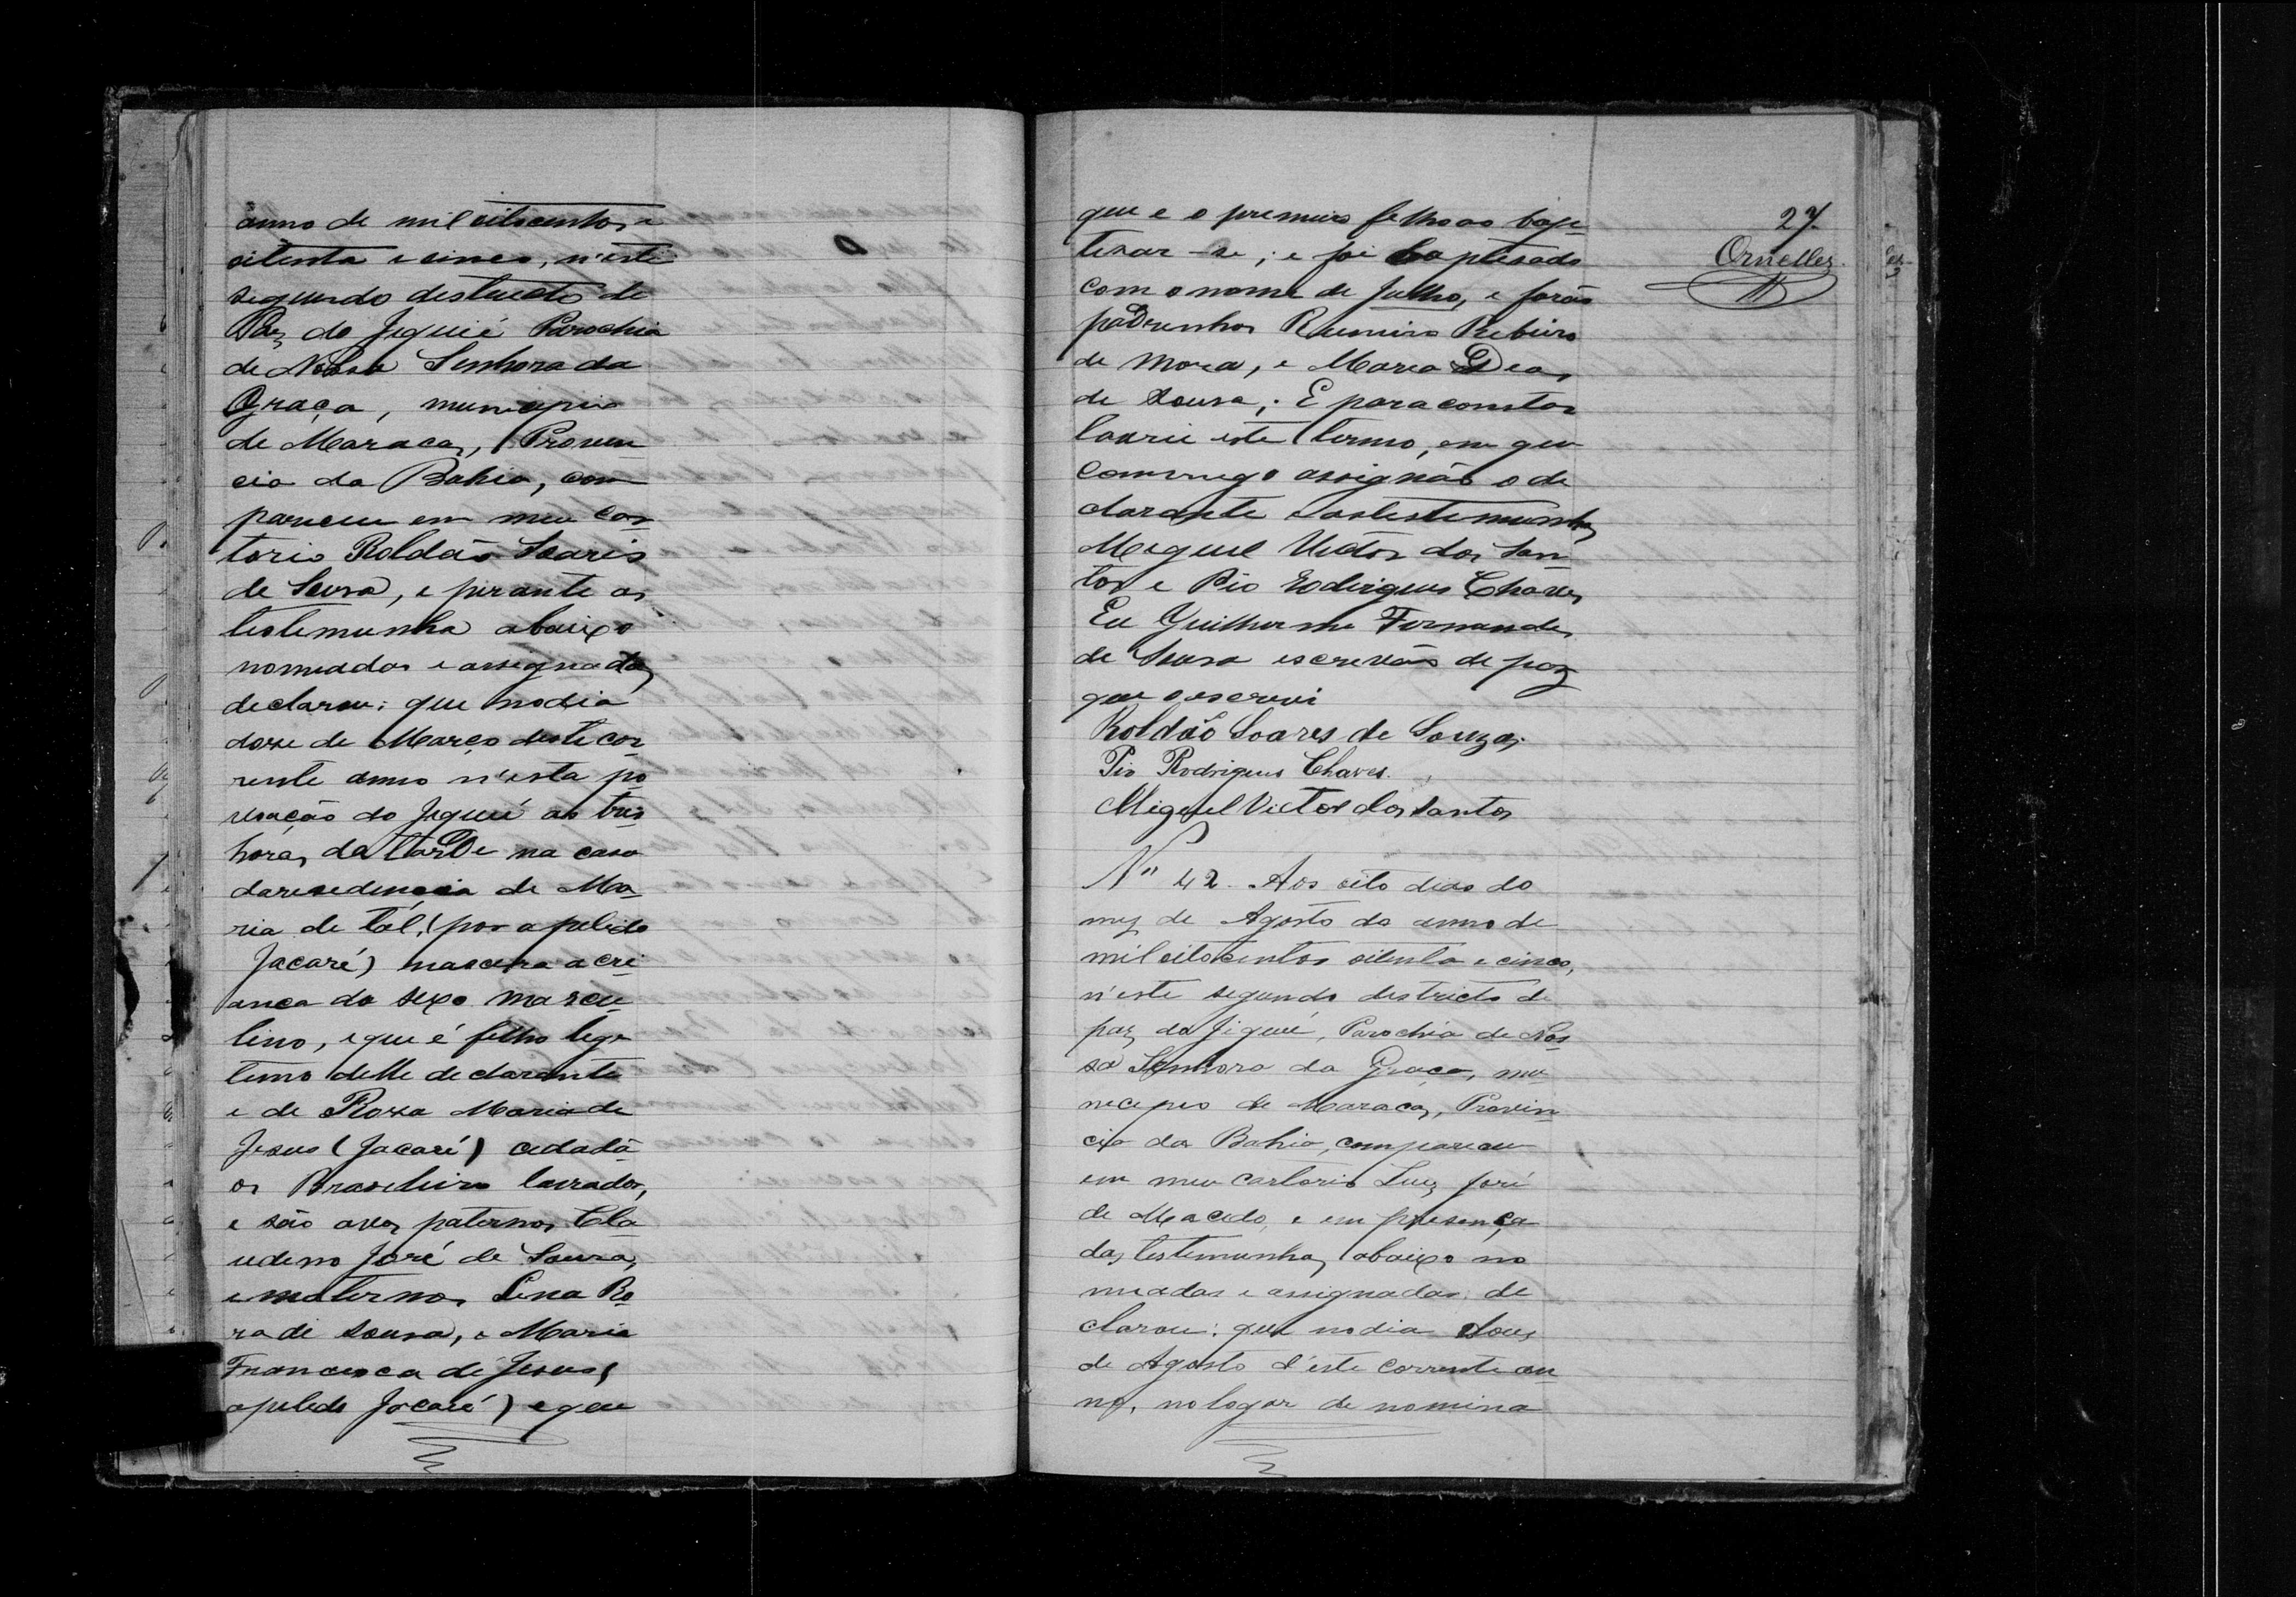 anno de mil oitocentos e
oitenta e cinco, n'este
segundo destricto de
Paz do Jequié Parochia
de Nossa Senhora da
Graça, municipio
de Maracas, Proven
cia da Bahia, com
pareceu em meu car
torio Roldão Soares
de Sousa, e perante as
testemunha abaixo
nomeadas e assegnadas
declarou: que no dia
dose de Março deste cor
rente anno n'esta po
voação do Jequié as tres
horas da tarde na casa
daresedencia de Ma
ria de tal, (por apelido
Jacaré) nascera a cri
ança do sexo mascu
lino, e que é filho lege
timo delle declarante
e de Rosa Maria de
Jesus (Jacaré) cedadã
os Brasileiro lavrador,
e são avos paternos Cla
udeno José de Sousa,
e maternos Lena Ro
sa de Sousa, e Maria
Francesca de Jesus (
apeledo Jacaré) e que
que e o premeiro filho ao bape
tesar-se; e foi baptesado
com o nome de Julho, e forão
padrenhos Rumiro Ribeiro
de Mora, e Marea Deas
de Sousa; E para constar
lavrei este termo, em que
commego assignão o de
clarante e as testemunhas
Meguel Victor dos San
tos e Pio Roderigues Chaves
Eu Guilherme Fernandes
de Sousa escrevão de paz
que o escrevi
Roldão Soares de Souza
Pio Rodrigues Chaves.
Miguel Victor dos Santos
Nº 42. Aos oito dias do
mez de Agosto do anno de
mil oitocentos oitenta e cinco,
n'este segundo destricto de
paz do Jiquié, Parochia de Nos
sa Senhora da Graça, mu
necipio de Maracas, Provin
cia da Bahia, compareceu
em meu cartorio Luiz José
de Macedo, e em presença
das testemunhas abaixo no
meadas e assignadas, de
clarou: que no dia dous
de Agosto d'este corrente an
no, no logar de nomina
27
Ornelles